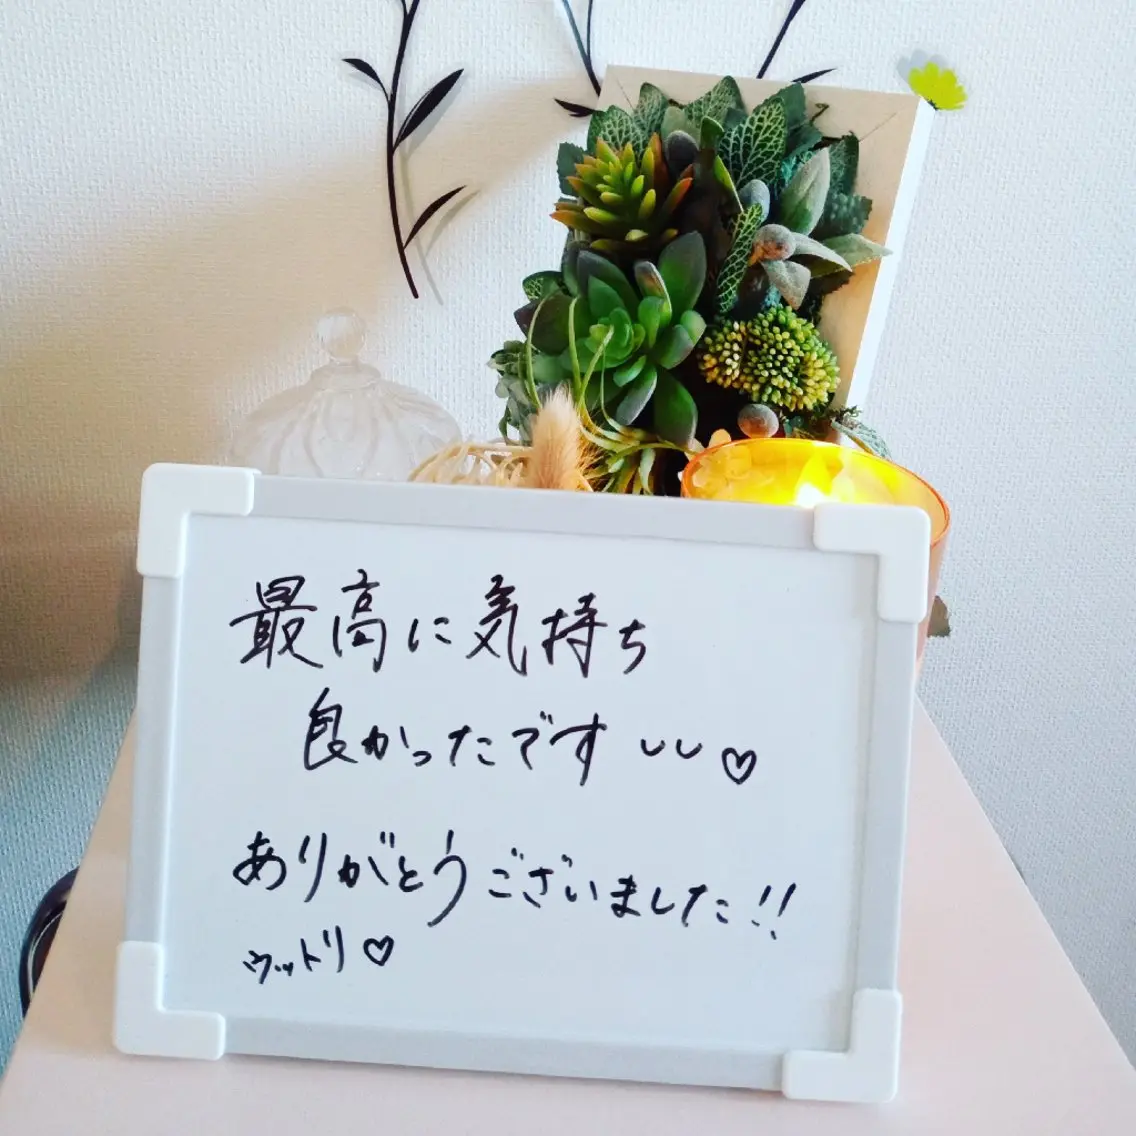 最高に気持ち
良かったです ◡◡ ♡
ありがとうございました!!
ウットリ♡